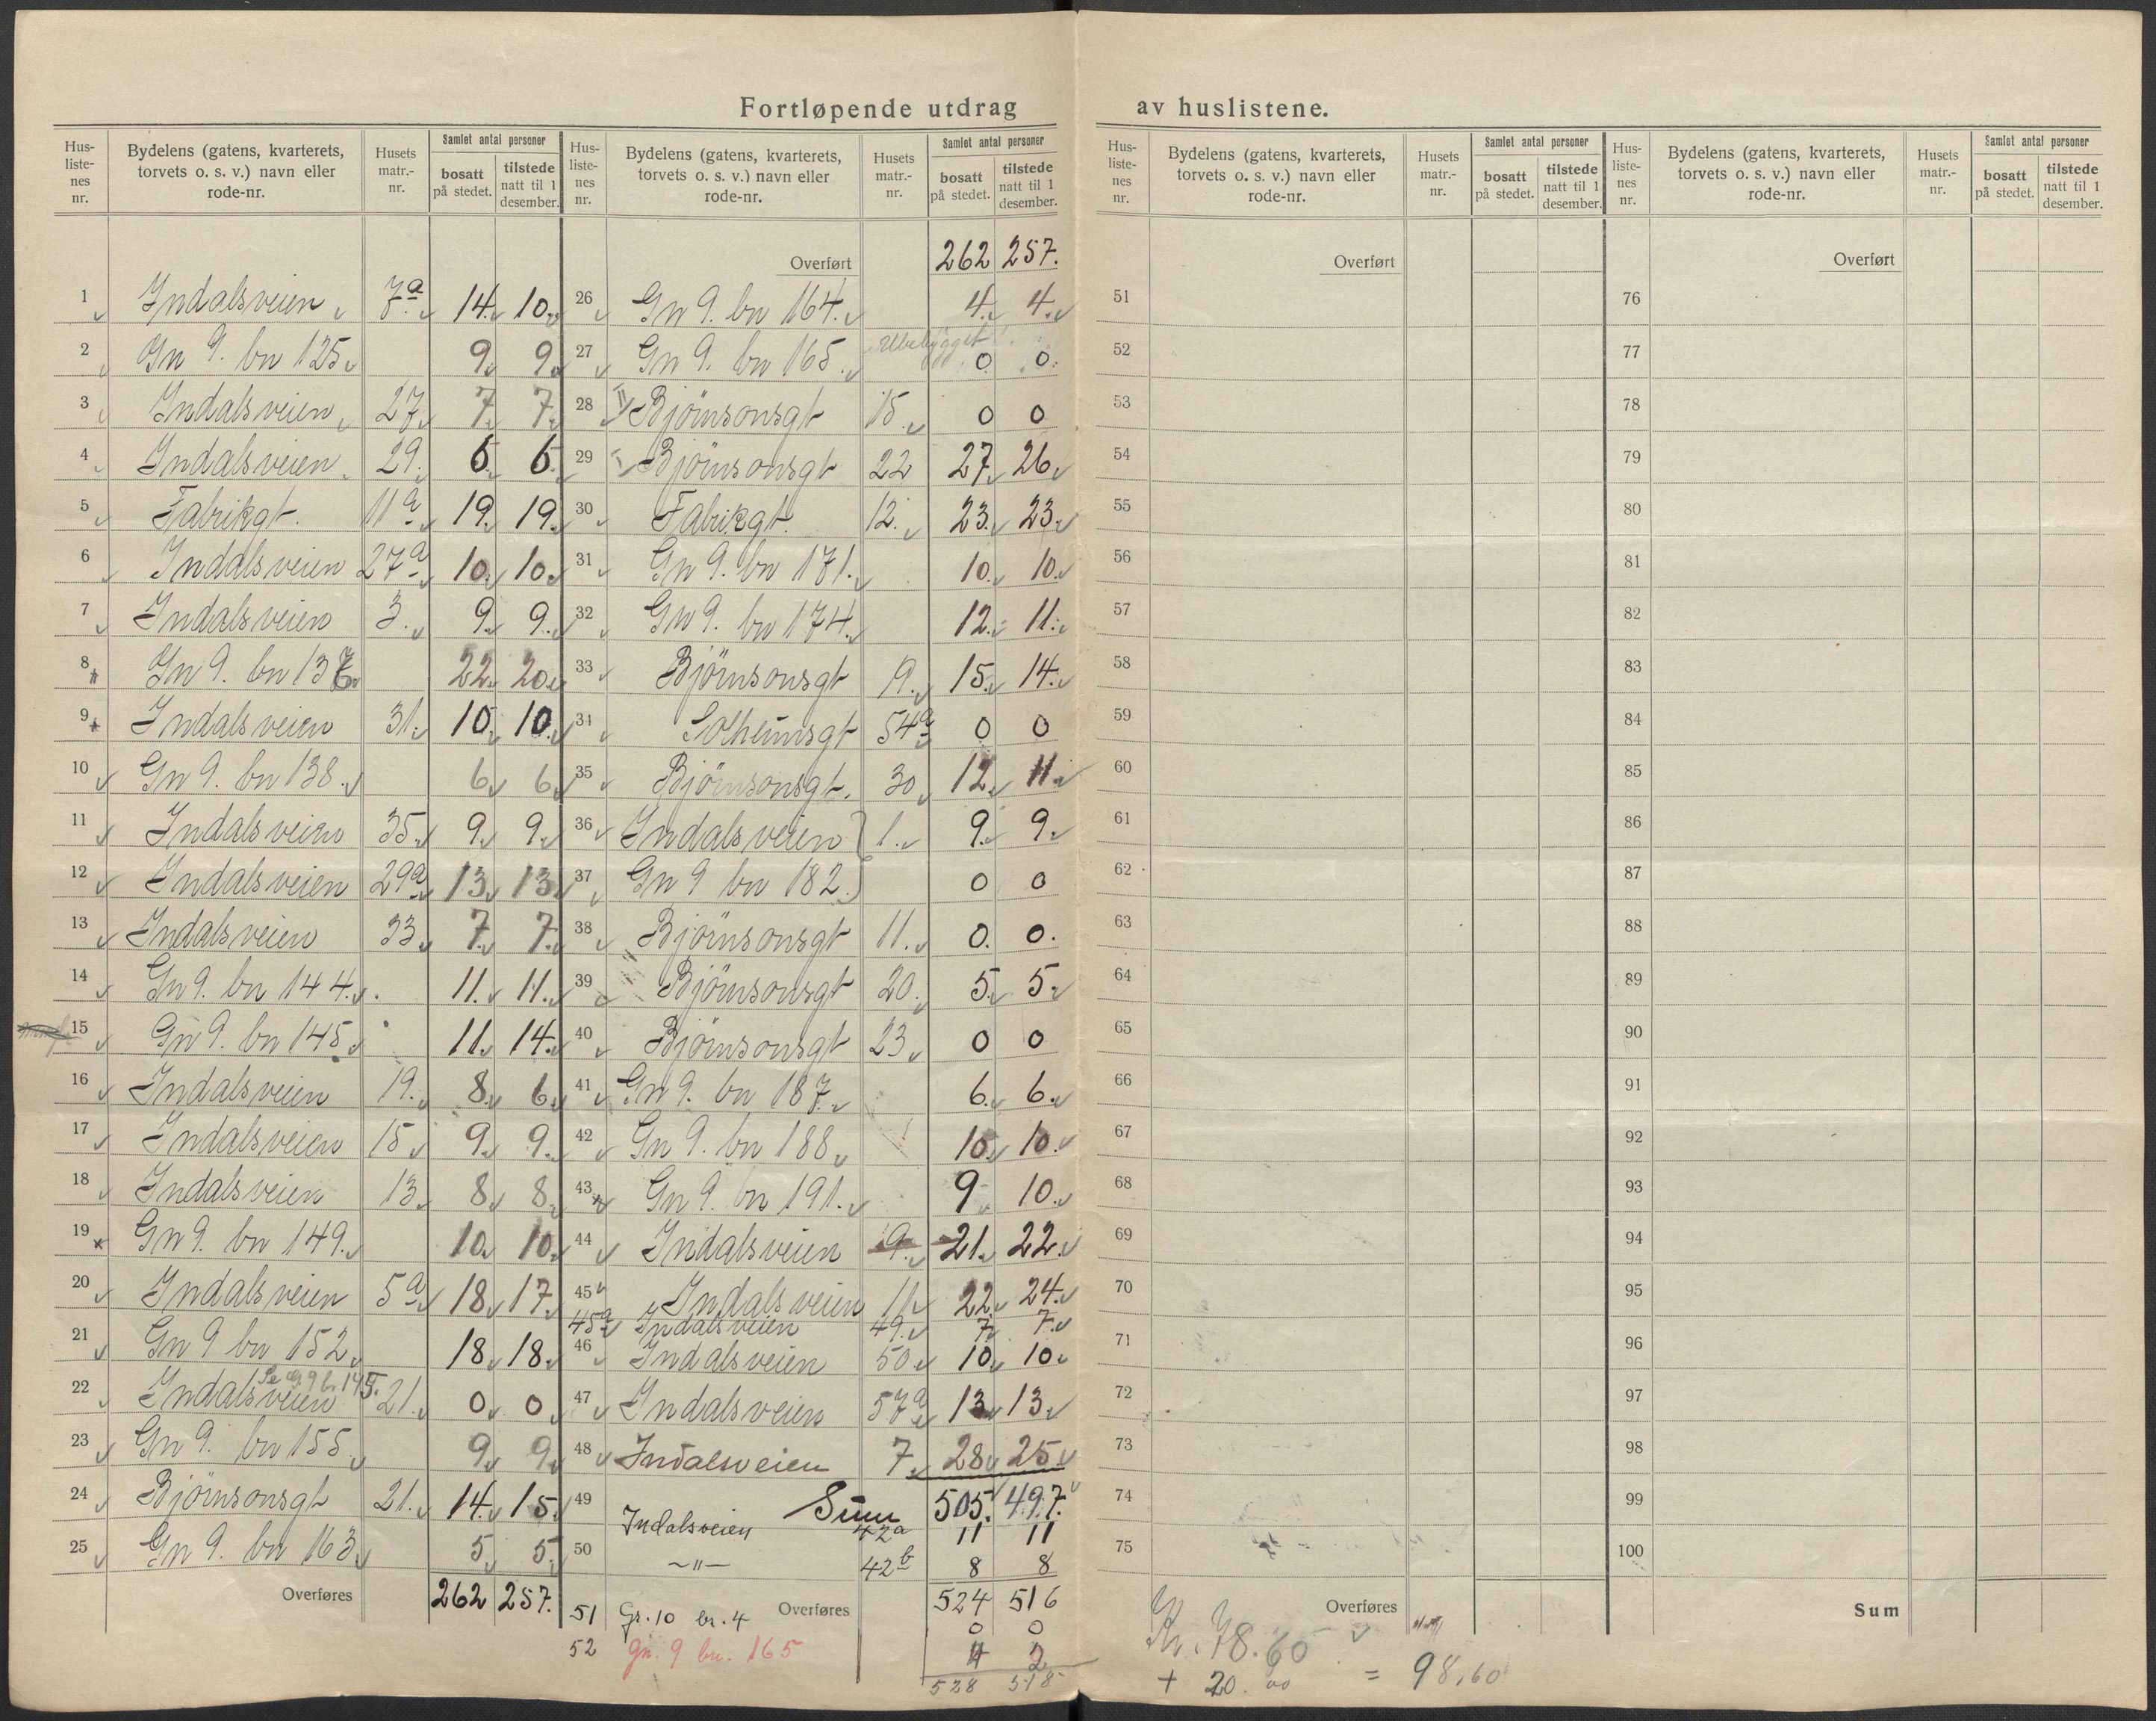 Fortløpende utdrag av huslistene.
Hus-listenes nr. Bydelens (gatens, kvarterets, torvets o. s. v.) navn eller rode-nr. Husets matr.-nr. Samlet antal personer bosatt på stedet. tilstede natt til 1 desember.
1 Indalsveien 7a 14 10
2 Gn 9. bn 125 9 9
3 Indalsveien 27 7 7
4 Indalsveien 29. 6 6
5 Fabrikgt. 11a 19 19
6 Indalsveien 27a 10 10
7 Indalsveien 3. 9 9
8 Gn 9. bn 22 20
9 Indalsveien 31. 10 10
10 Gn 9. bn 138. 6 6
11 Indalsveien 35. 9 9
12 Indalsveien 29a 13 13
13 Indalsveien 33 7 7
14 Gn 9. bn 144. 11 11
15 Gn 9. bn 145 11 14
16 Indalsveien 19. 8 6
17 Indalsveien 15 9 9
18 Indalsveien 13 8 8
19 Gn 9. bn 149. 10 10
20 Indalsveien 5a 18 17
21 Gn 9 bn 152 18 18
Se G. 9 b. 145.
22 Indalsveien 21. 0 0
23 Gn 9. bn 155. 9 9
24 Bjørnsonsgt 21. 14 15
25 Gn 9. bn 163 5 5
Overføres 262 257.
Hus-listenes nr. Bydelens (gatens, kvarterets, torvets o. s. v.) navn eller rode-nr. Husets matr.-nr. Samlet antal personer bosatt på stedet. tilstede natt til 1 desember.
Overført 262 257.
26 Gn 9. bn 164. 4 4
27 Gn 9. bn 165. Ubebygget 0 0
28 Bjørnsonsgt 15. 0 0
29 Bjørnsonsgt 22 27 26
30 Fabrikgt. 12. 23 23
31 Gn 9. bn 171. 10 10
32 Gn 9. bn 174. 12 11
33 Bjørnsonsgt 19. 15 14
34 Solheimsgt 54a 0 0
35 Bjørnsonsgt. 30 12 11
36 Indalsveien 1. 9 9
37 Gn 9 bn 182. 0 0
38 Bjørnsonsgt 11. 0. 0.
39 Bjørnsonsgt 20. 5 5
40 Bjørnsonsgt 23 0 0
41 Gn 9. bn 187. 6 6
42 Gn 9. bn 188 10 10
43 Gn 9. bn 191. 9 10
44 Indalsveien 9. 21 22
45 Indalsveien 11 22 24
45a Indalsveien 49. 7 7
46 Indalsveien 50 10 10
47 Indalsveien 57a 13 13
48 Indalsveien 7 28 25
49 Sum 505. 497.
Indalsveien 42a 11 11
50 -"- 42b 8 8
Overføres 524 516
51 Gr. 10 br. 4 0 0
52 gn. 9 bn. 165 4 2
528 518
Hus-listenes nr. Bydelens (gatens, kvarterets, torvets o. s. v.) navn eller rode-nr. Husets matr.-nr. Samlet antal personer bosatt på stedet. tilstede natt til 1 desember.
Overført
51
52
53
54
55
56
57
58
59
60
61
62
63
64
65
66
67
68
69
70
71
72
73
74
75
Overføres
Kr. 78.60
+ 20.00 = 98.60
Hus-listenes nr. Bydelens (gatens, kvarterets, torvets o. s. v.) navn eller rode-nr. Husets matr.-nr. Samlet antal personer bosatt på stedet. tilstede natt til 1 desember.
Overført
76
77
78
79
80
81
82
83
84
85
86
87
88
89
90
91
92
93
94
95
96
97
98
99
100
Sum